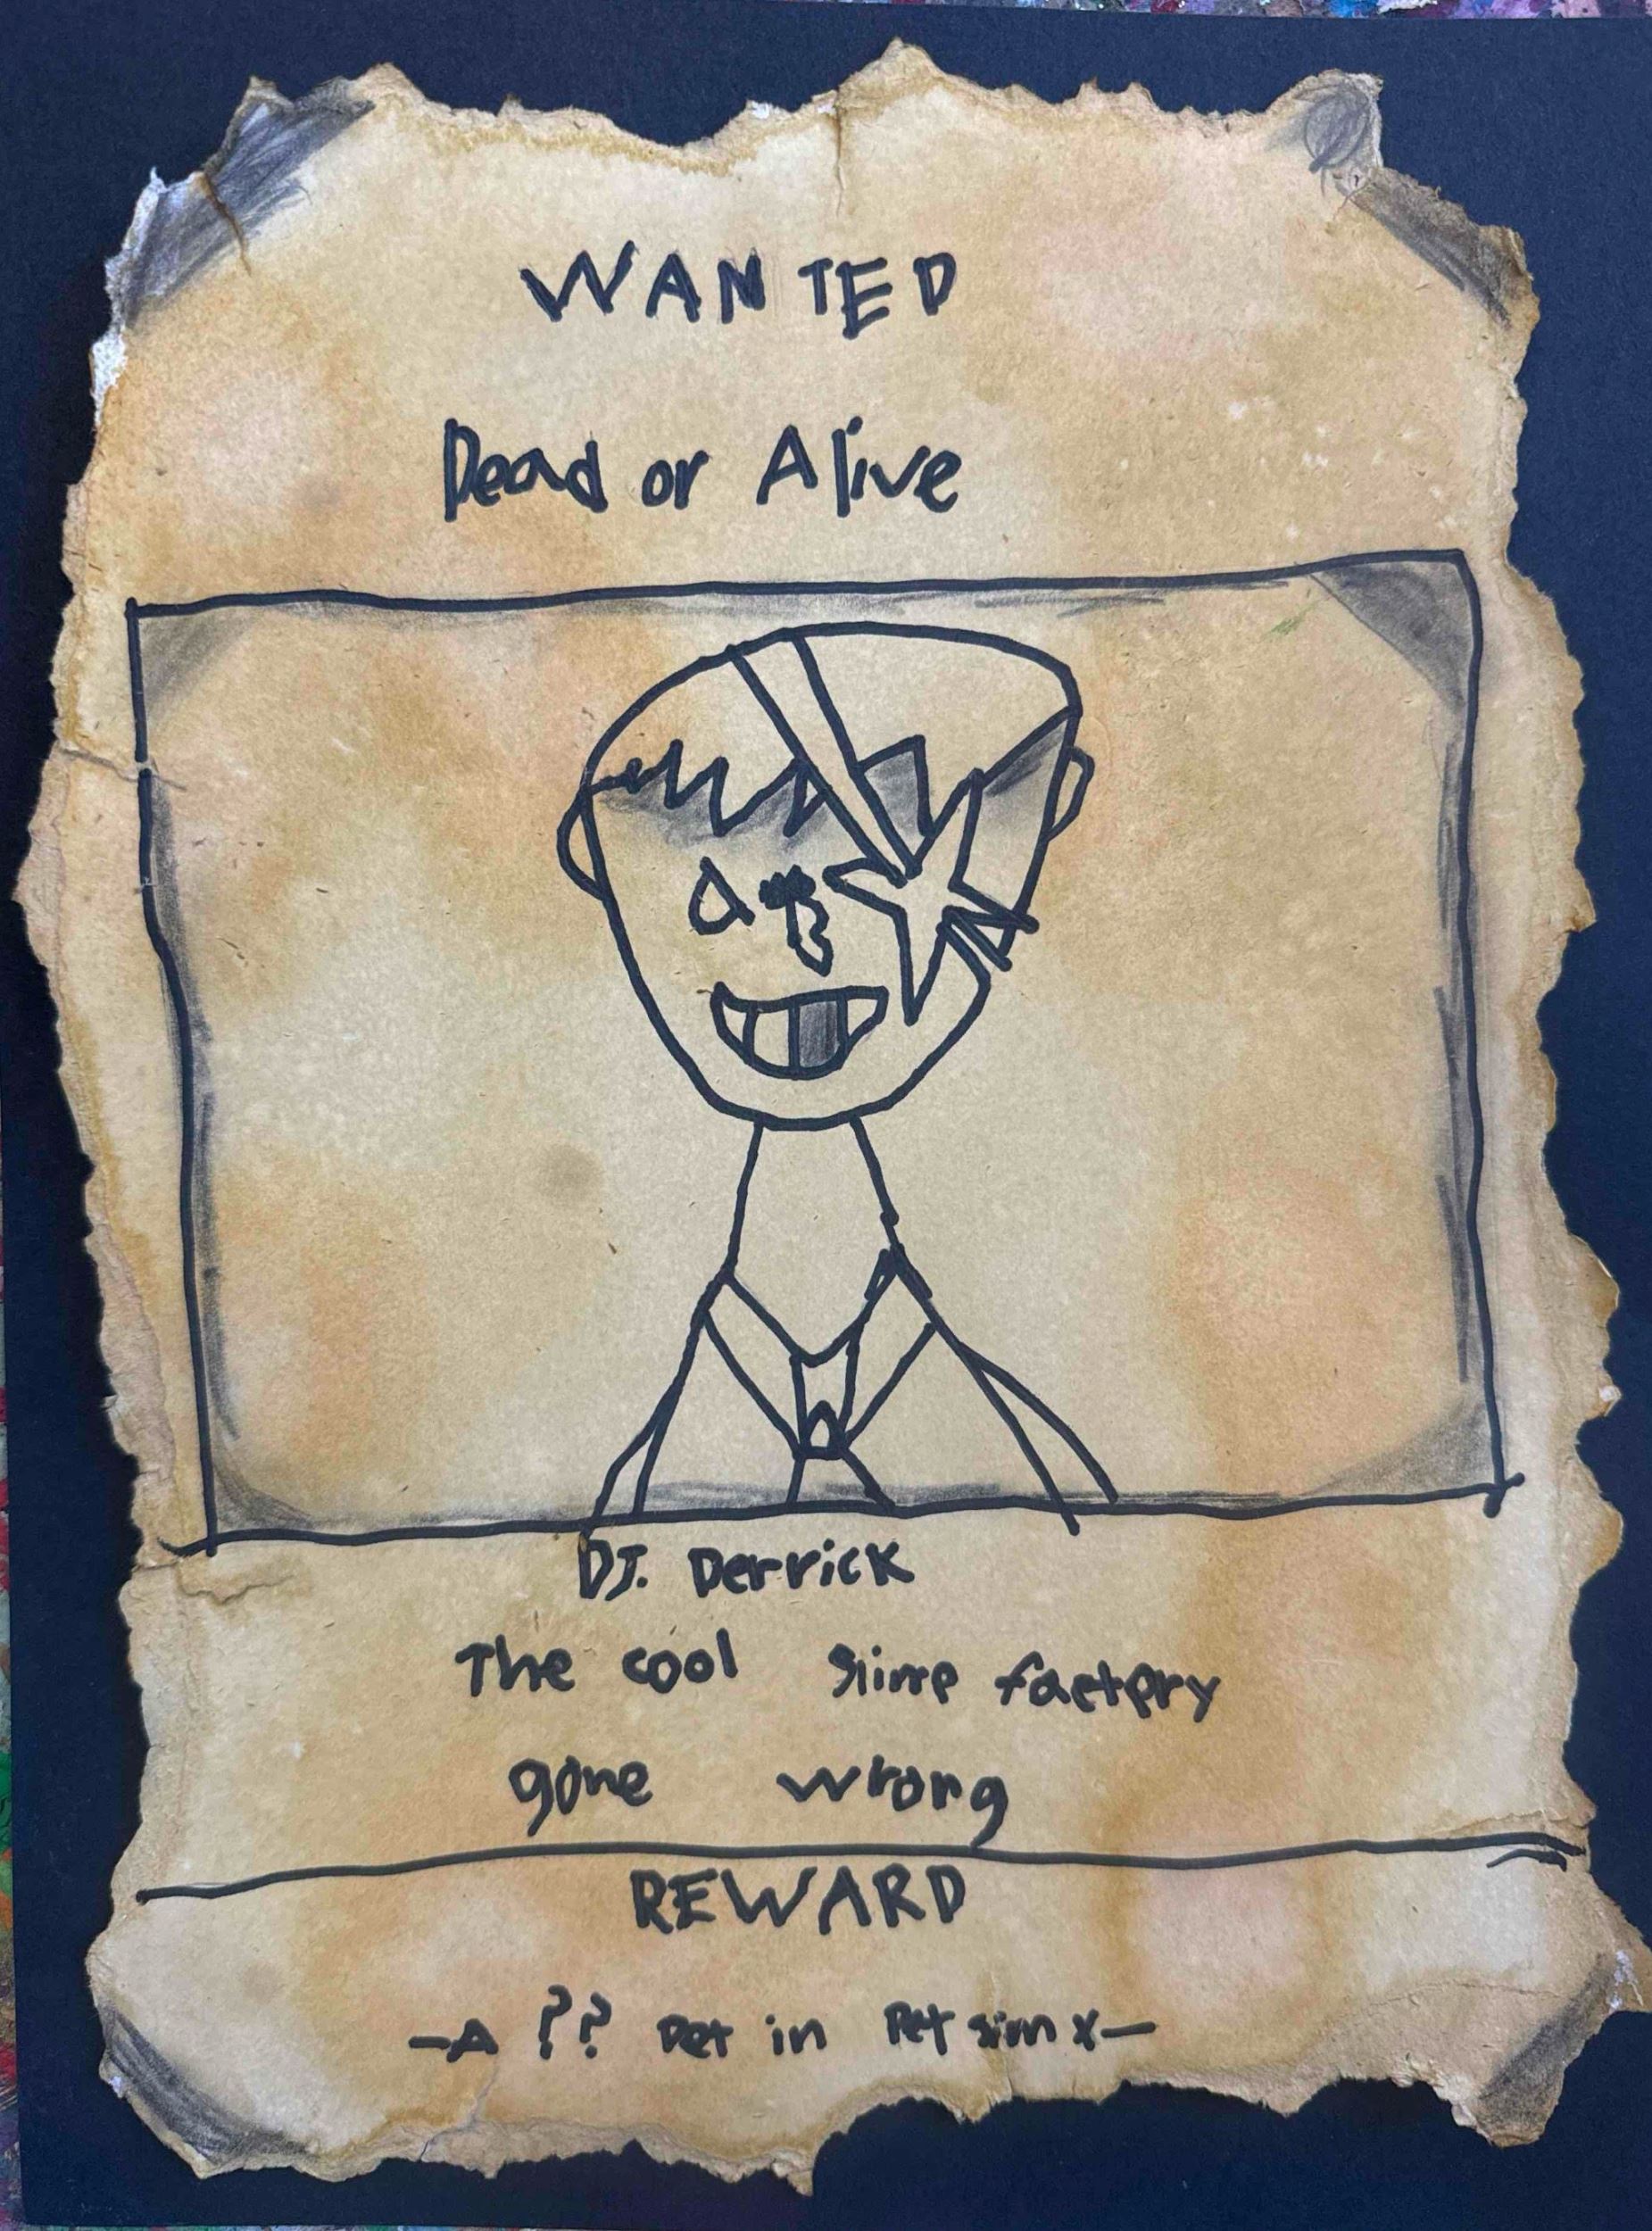 WANTED
Dead or Alive
DJ. Derrick
The cool slime factory
gone wrong
REWARD
-A ?? Pet in Pet sim x-